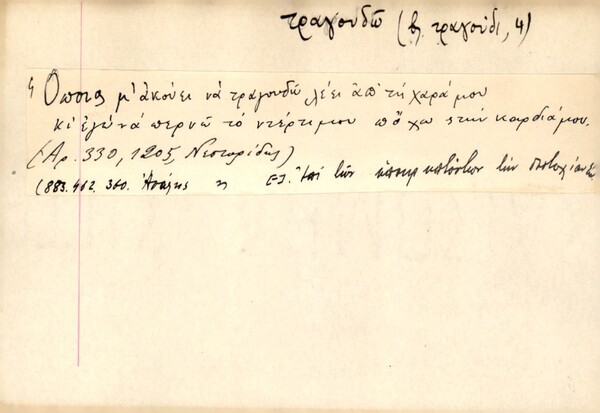 τραγουδῶ (βλ. τραγούδι, 4)
Ὅποιος μ' ἀκούει νὰ τραγουδῶ λέει ἀπ' τὴ χαρά μου
κι ἐγὼ νὰ περνῶ τὸ ντέρτι μου πὄχω στὴν καρδιά μου.
(Ἀρ. 330, 1205, Νεστορίδης)
(883. 462. 360.